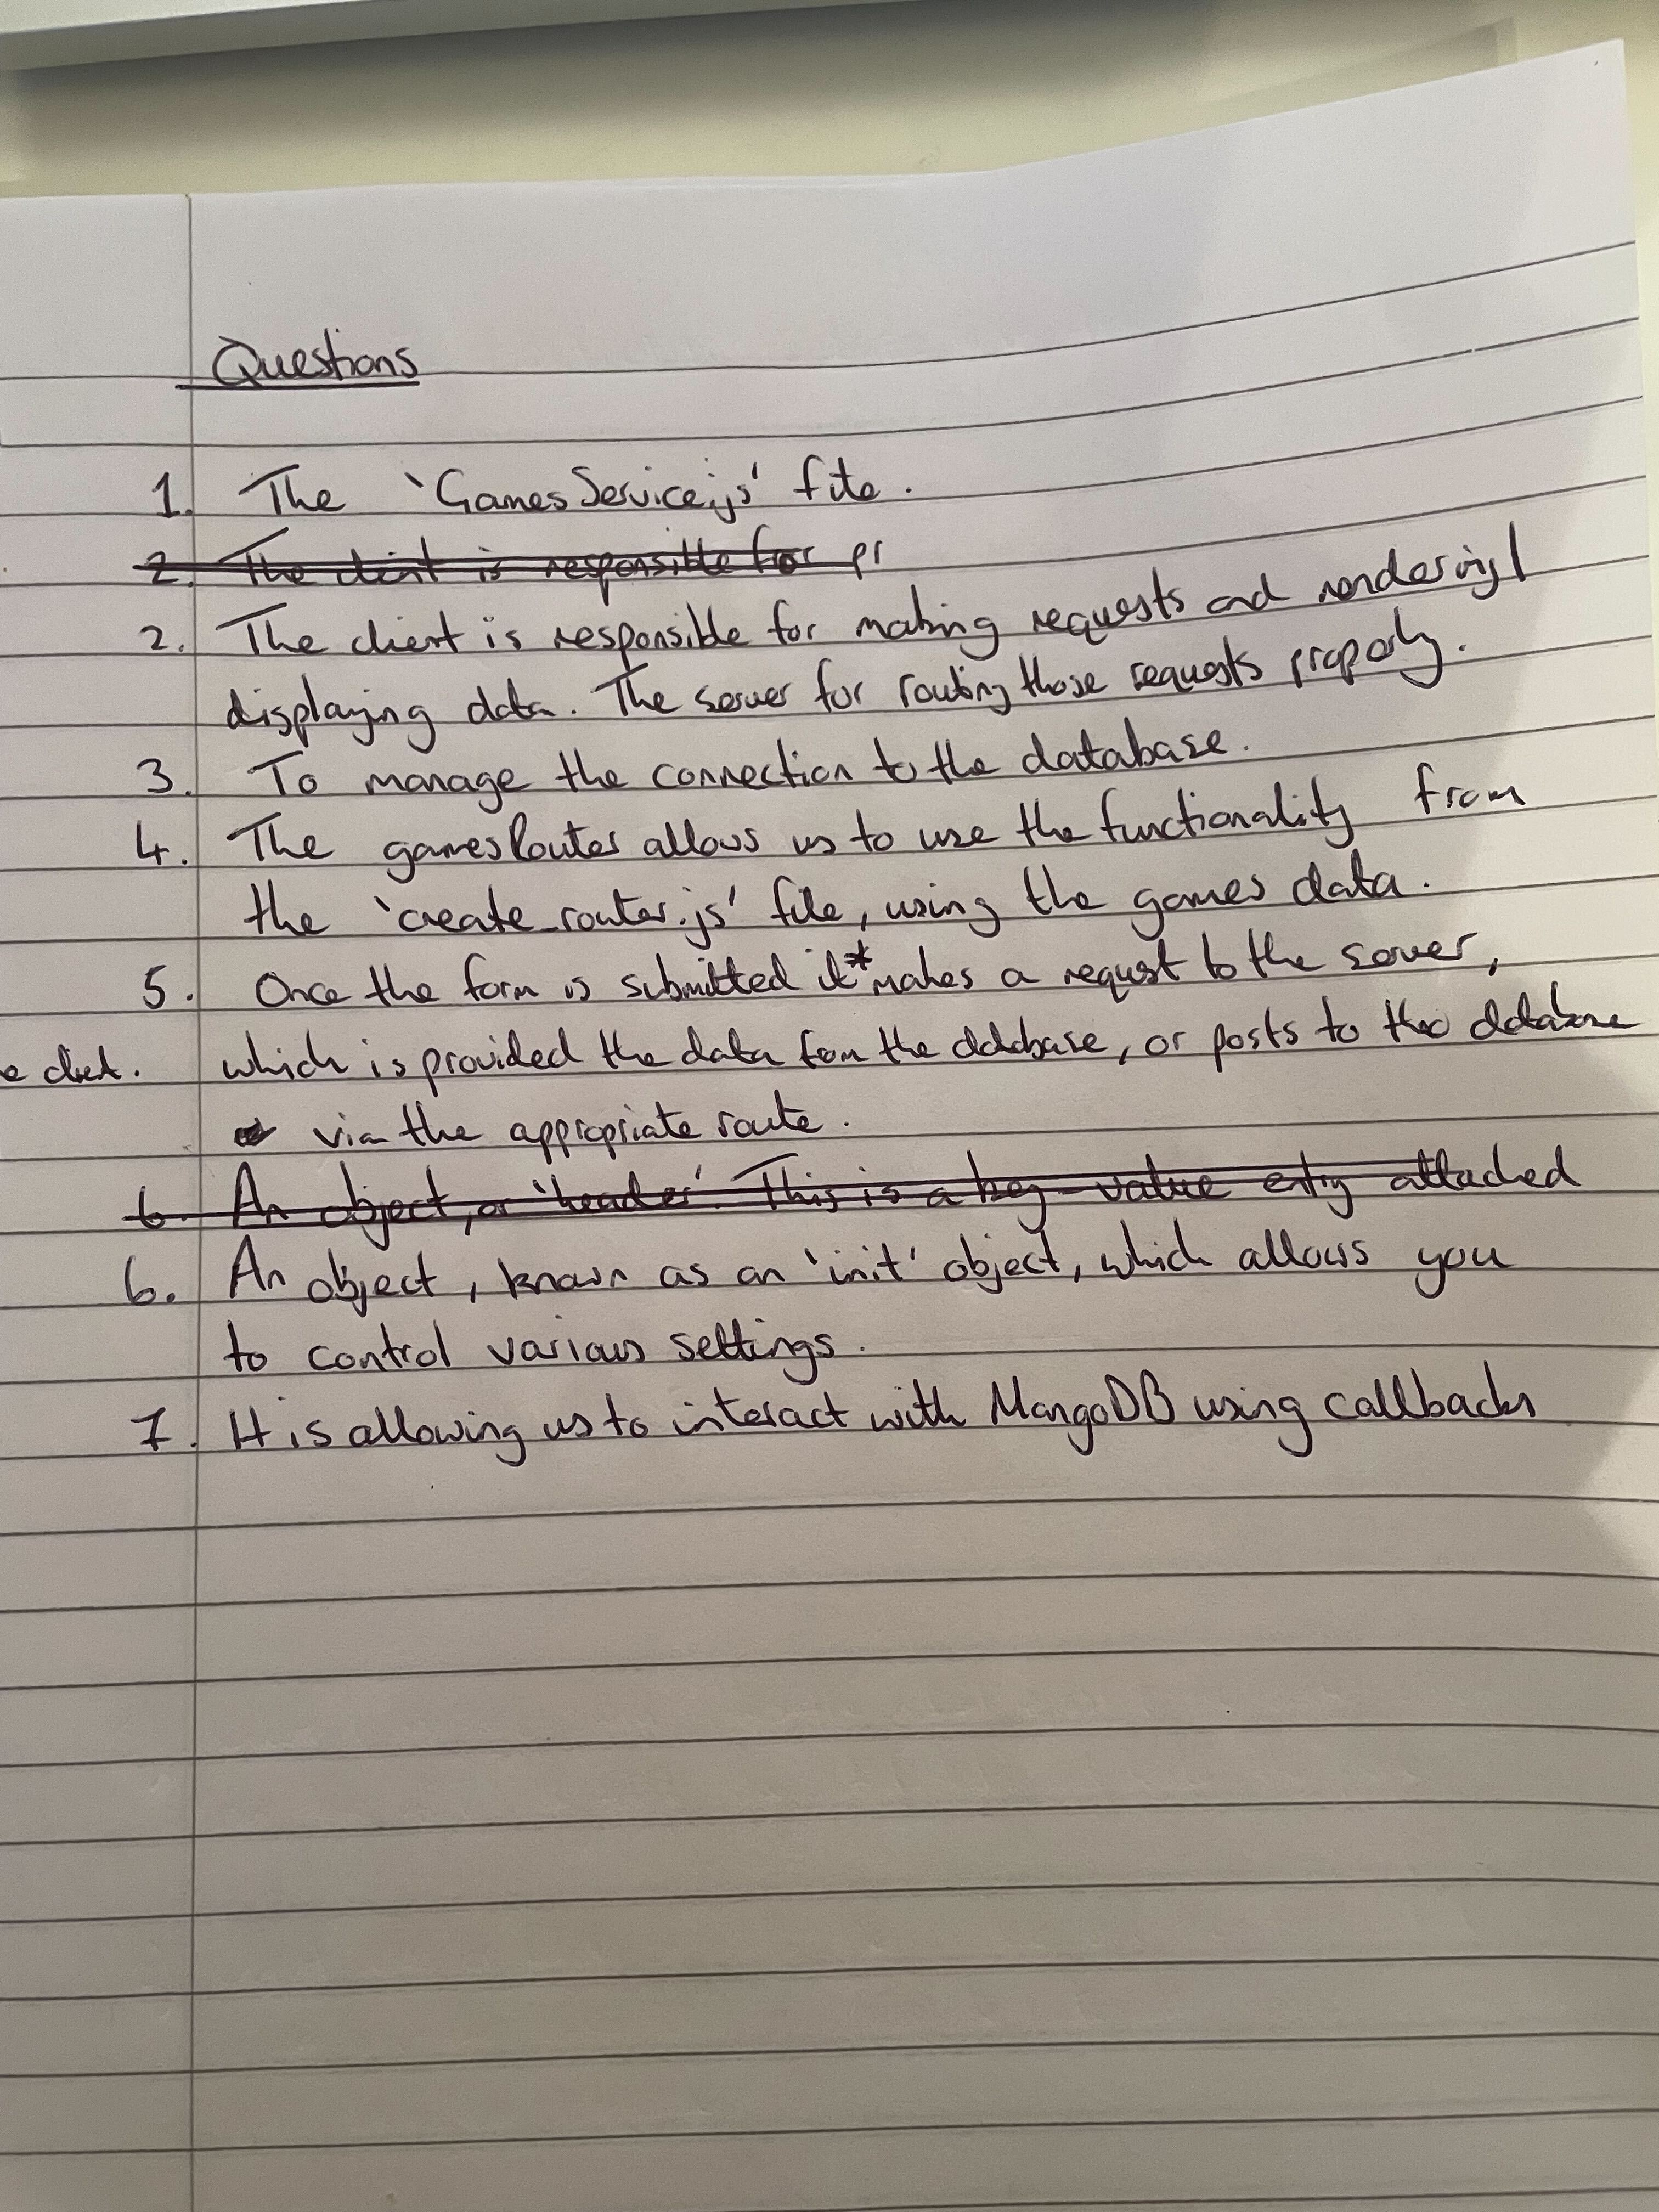 Questions
1. The 'GamesService.js' file.
2. The client is responsible for pr
2. The client is responsible for making requests and rendering/
displaying data. The server for routing those requests properly.
3. To manage the connection to the database.
4. The gamesRouter allows us to use the functionality from
the 'create_router.js' file, using the games data.
5. Once the form is submitted it* makes a request to the server,
e client. which is provided the data from the database, or posts to the database
via the appropriate route.
6. An object, or 'header'. This is a key-value entry attached
6. An object, known as an 'init' object, which allows you
to control various settings.
7. It is allowing us to interact with MongoDB using callbacks